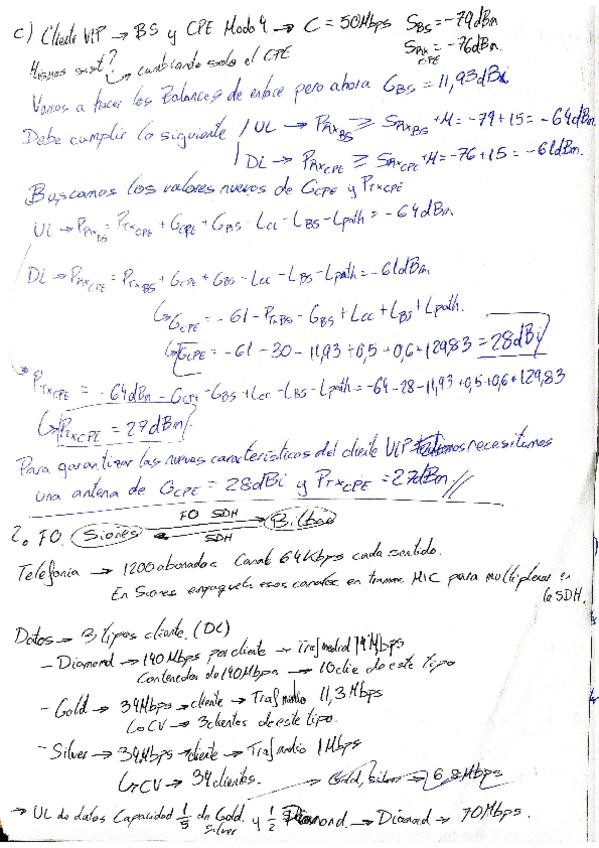 c) Cliente VIP → BS y CPE Modo 4 → C = 50Mbps S_BS = -79dBm
S_PRx CPE = -76dBm.
Mismos sist? ↳ cambiando solo el CPE
Vamos a hacer los Balances de enlace pero ahora G_BS = 11,93dBi
Debe cumplir lo siguiente / UL → P_Rx_BS ≥ S_Rx_BS + M = -79 + 15 = -64dBm.
| DL → P_Rx_CPE ≥ S_Rx_CPE + M = -76 + 15 = -61dBm.
Buscamos los valores nuevos de G_CPE y P_Tx_CPE
UL → P_Rx_BS = P_Tx_CPE + G_CPE + G_BS - Lcc - L_BS - Lpath = -64dBm
DL → P_Rx_CPE = P_Tx_BS + G_CPE + G_BS - Lcc - L_BS - Lpath = -61dBm
↳ G_CPE = -61 - P_Tx_BS - G_BS + Lcc + L_BS + Lpath.
↳ G_CPE = -61 - 30 - 11,93 + 0,5 + 0,6 + 129,83 = 28dBi
P_Tx_CPE = -64dBm - G_CPE - G_BS + Lcc - L_BS - Lpath = -64 - 28 - 11,93 + 0,5 + 0,6 + 129,83
↳ P_Tx_CPE = 27dBm
Para garantizar las nuevas características del cliente VIP necesitamos
una antena de G_CPE = 28dBi y P_Tx_CPE = 27dBm //
2. FO. Siones FO SDH → Bilbao
SDH
Telefonía → 1200 abonados Canal 64Kbps cada sentido.
En Siones empaqueta esos canales en tramas MIC para multiplexar en
la SDH.
Datos → 3 tipos cliente. (DL)
- Diamond → 140Mbps por cliente → Traf medio 14Mbps
Contenedor de 140Mbps → 10 clie de este tipo
- Gold → 34Mbps → cliente → Traf medio 11,3Mbps
↳ CV → 3 clientes de este tipo.
- Silver → 34Mbps → cliente → Traf medio 1Mbps
↳ CV → 34 clientes. → Gold, silver → 6,8Mbps
→ UL de datos Capacidad 1/5 de Gold Silver y 1/2 Diamond. → Diamond → 70Mbps.